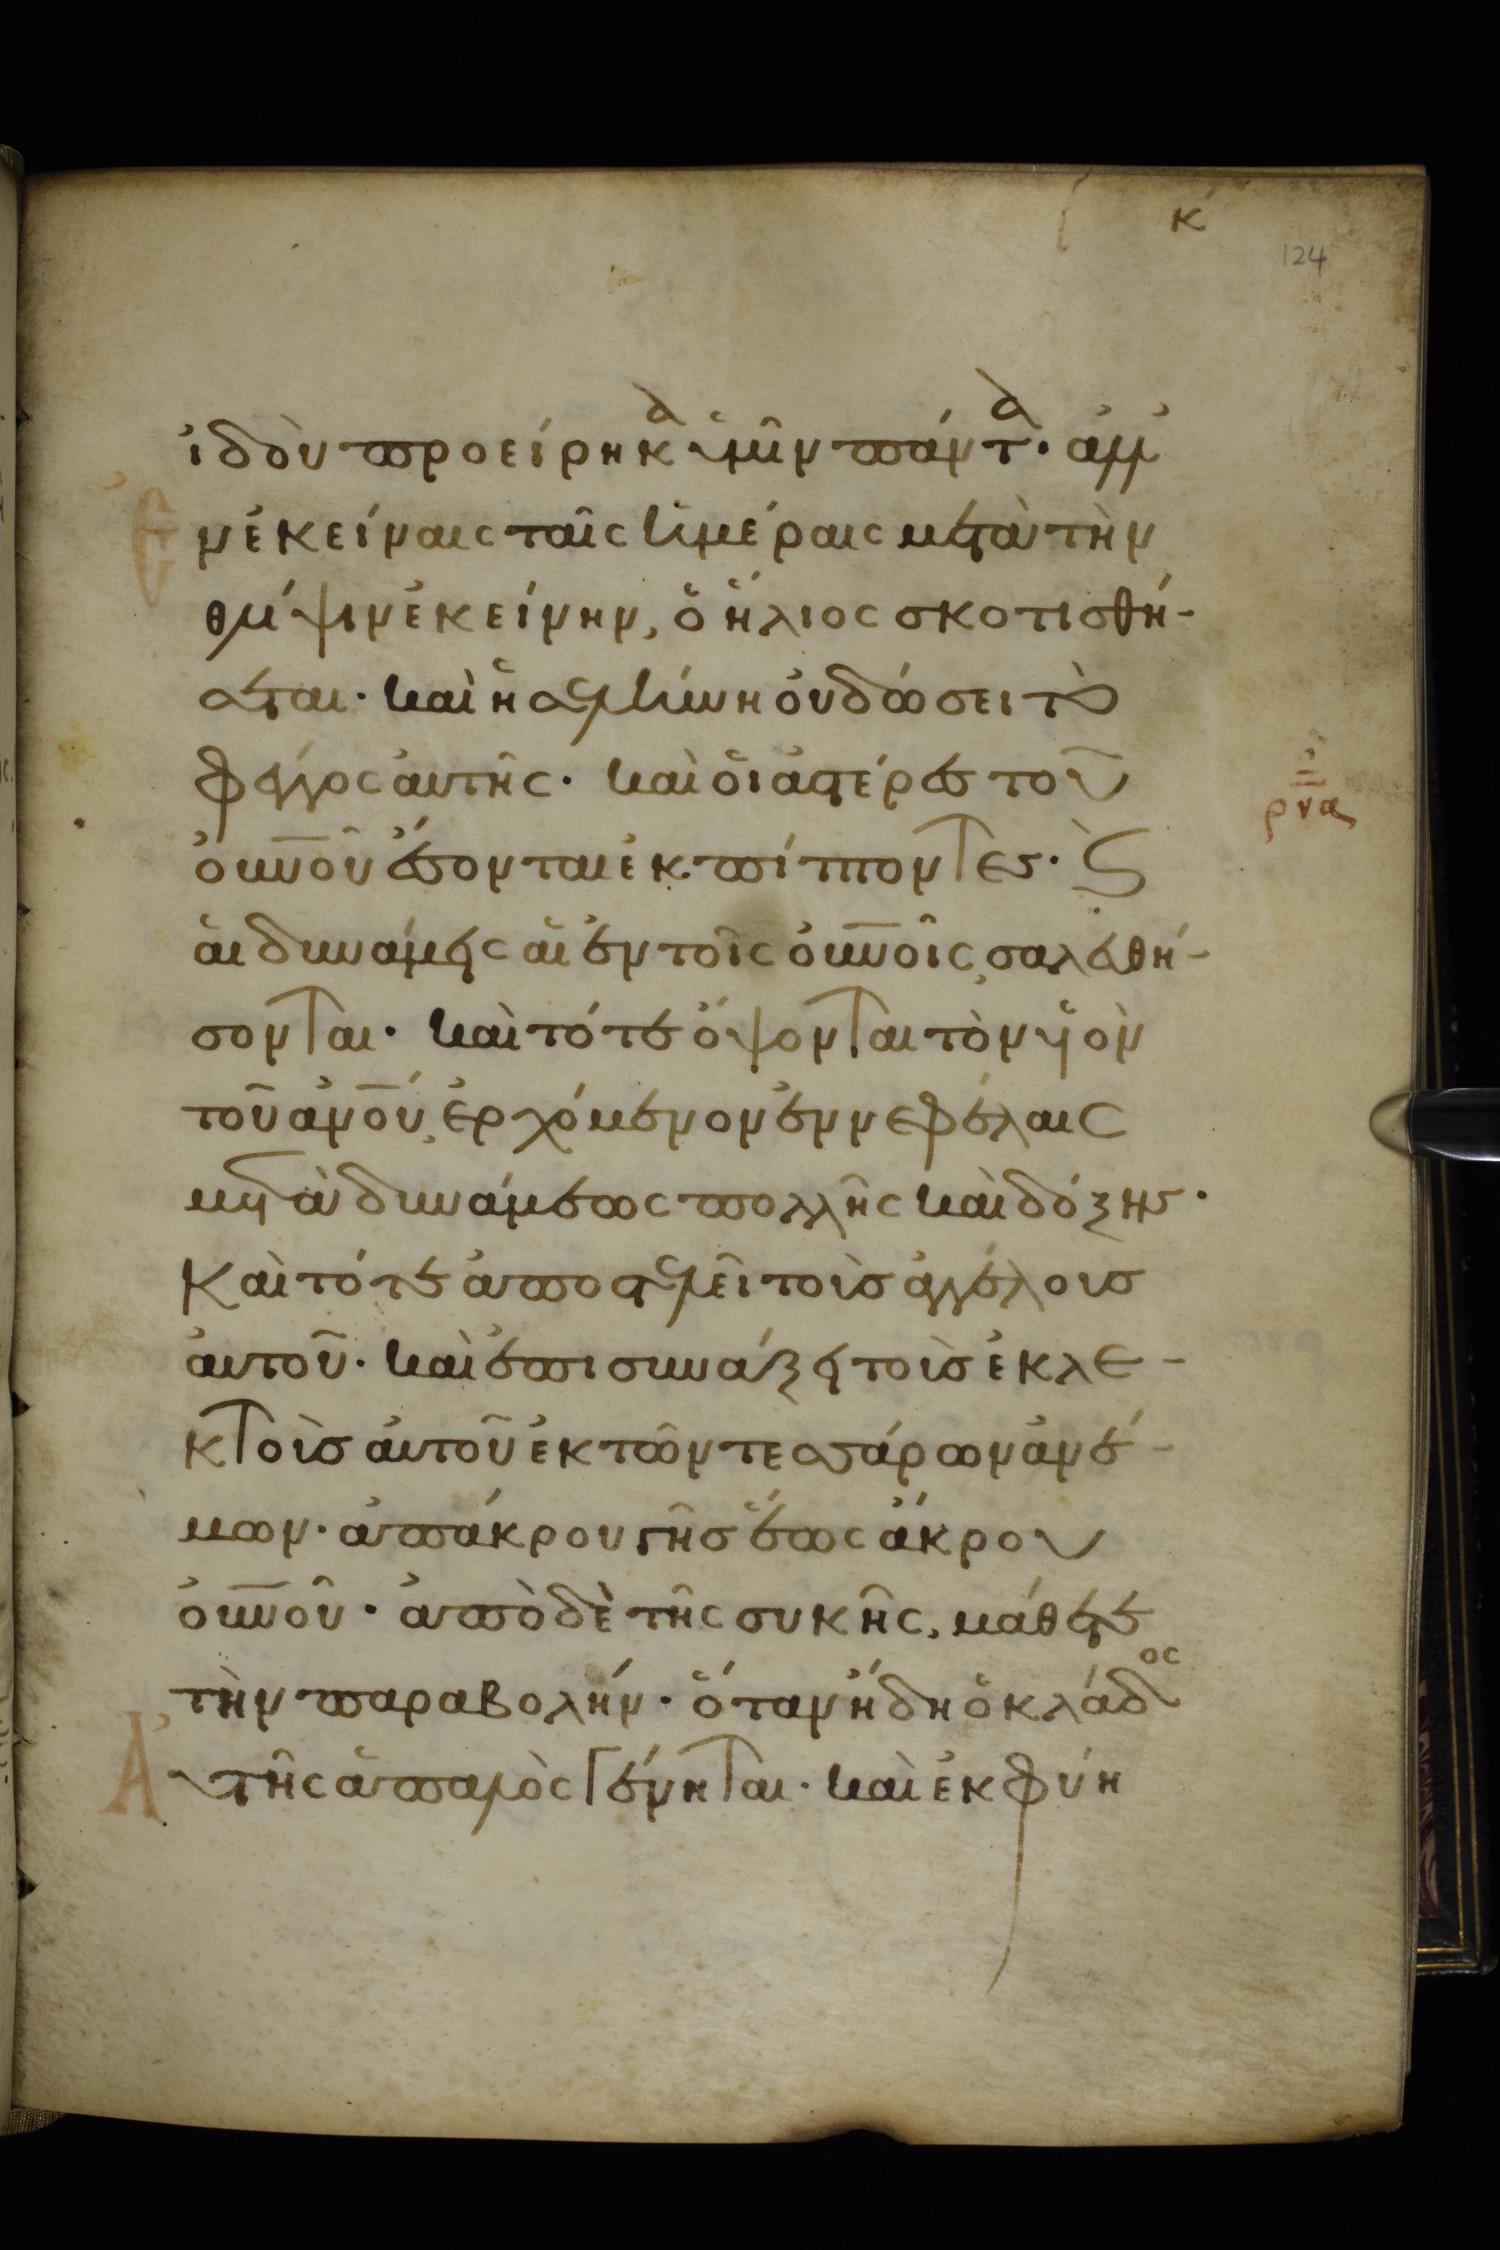 κ
124
ἰδοὺ προείρηκα ὑμῖν πάντα· ἀλλ
Ἐν ἐκείναις ταῖς ἡμέραις μετὰ τὴν
θλίψιν ἐκείνην, ὁ ἥλιος σκοτισθή-
σεται· καὶ ἡ σελήνη οὐ δώσει τὸ
φέγγος ἀυτῆς· καὶ ὁι ἀστέρες τοῦ
ρνα
ὀυνοῦ ἔσονται ἐκπίπτοντες· ϗ
ἁι δυνάμεις ἁι ἐν τοῖς ὀυνοῖς, σαλευθή-
σονται· καὶ τότε ὄψονται τὸν ὑὸν
τοῦ ἀνου, ἐρχόμενον ἐν νεφέλαις
μετὰ δυνάμεως πολλῆς καὶ δόξης·
Καὶ τότε ἀποστελεῖ τοὺς ἀγγέλους
ἀυτοῦ· καὶ ἐπισυνάξει τοὺς ἐκλε-
κτοὺς ἀυτοῦ ἐκ τῶν τεσσάρων ἀνέ-
μων· ἀπάκρου γῆς ἕως ἄκρου
ὀυνοῦ· ἀπὸ δὲ τῆς συκῆς, μάθετε
τὴν παραβολήν· ὅταν ἤδη ὁ κλάδος
Ἀυτῆς ἁπαλὸς γένηται· καὶ ἐκφύη